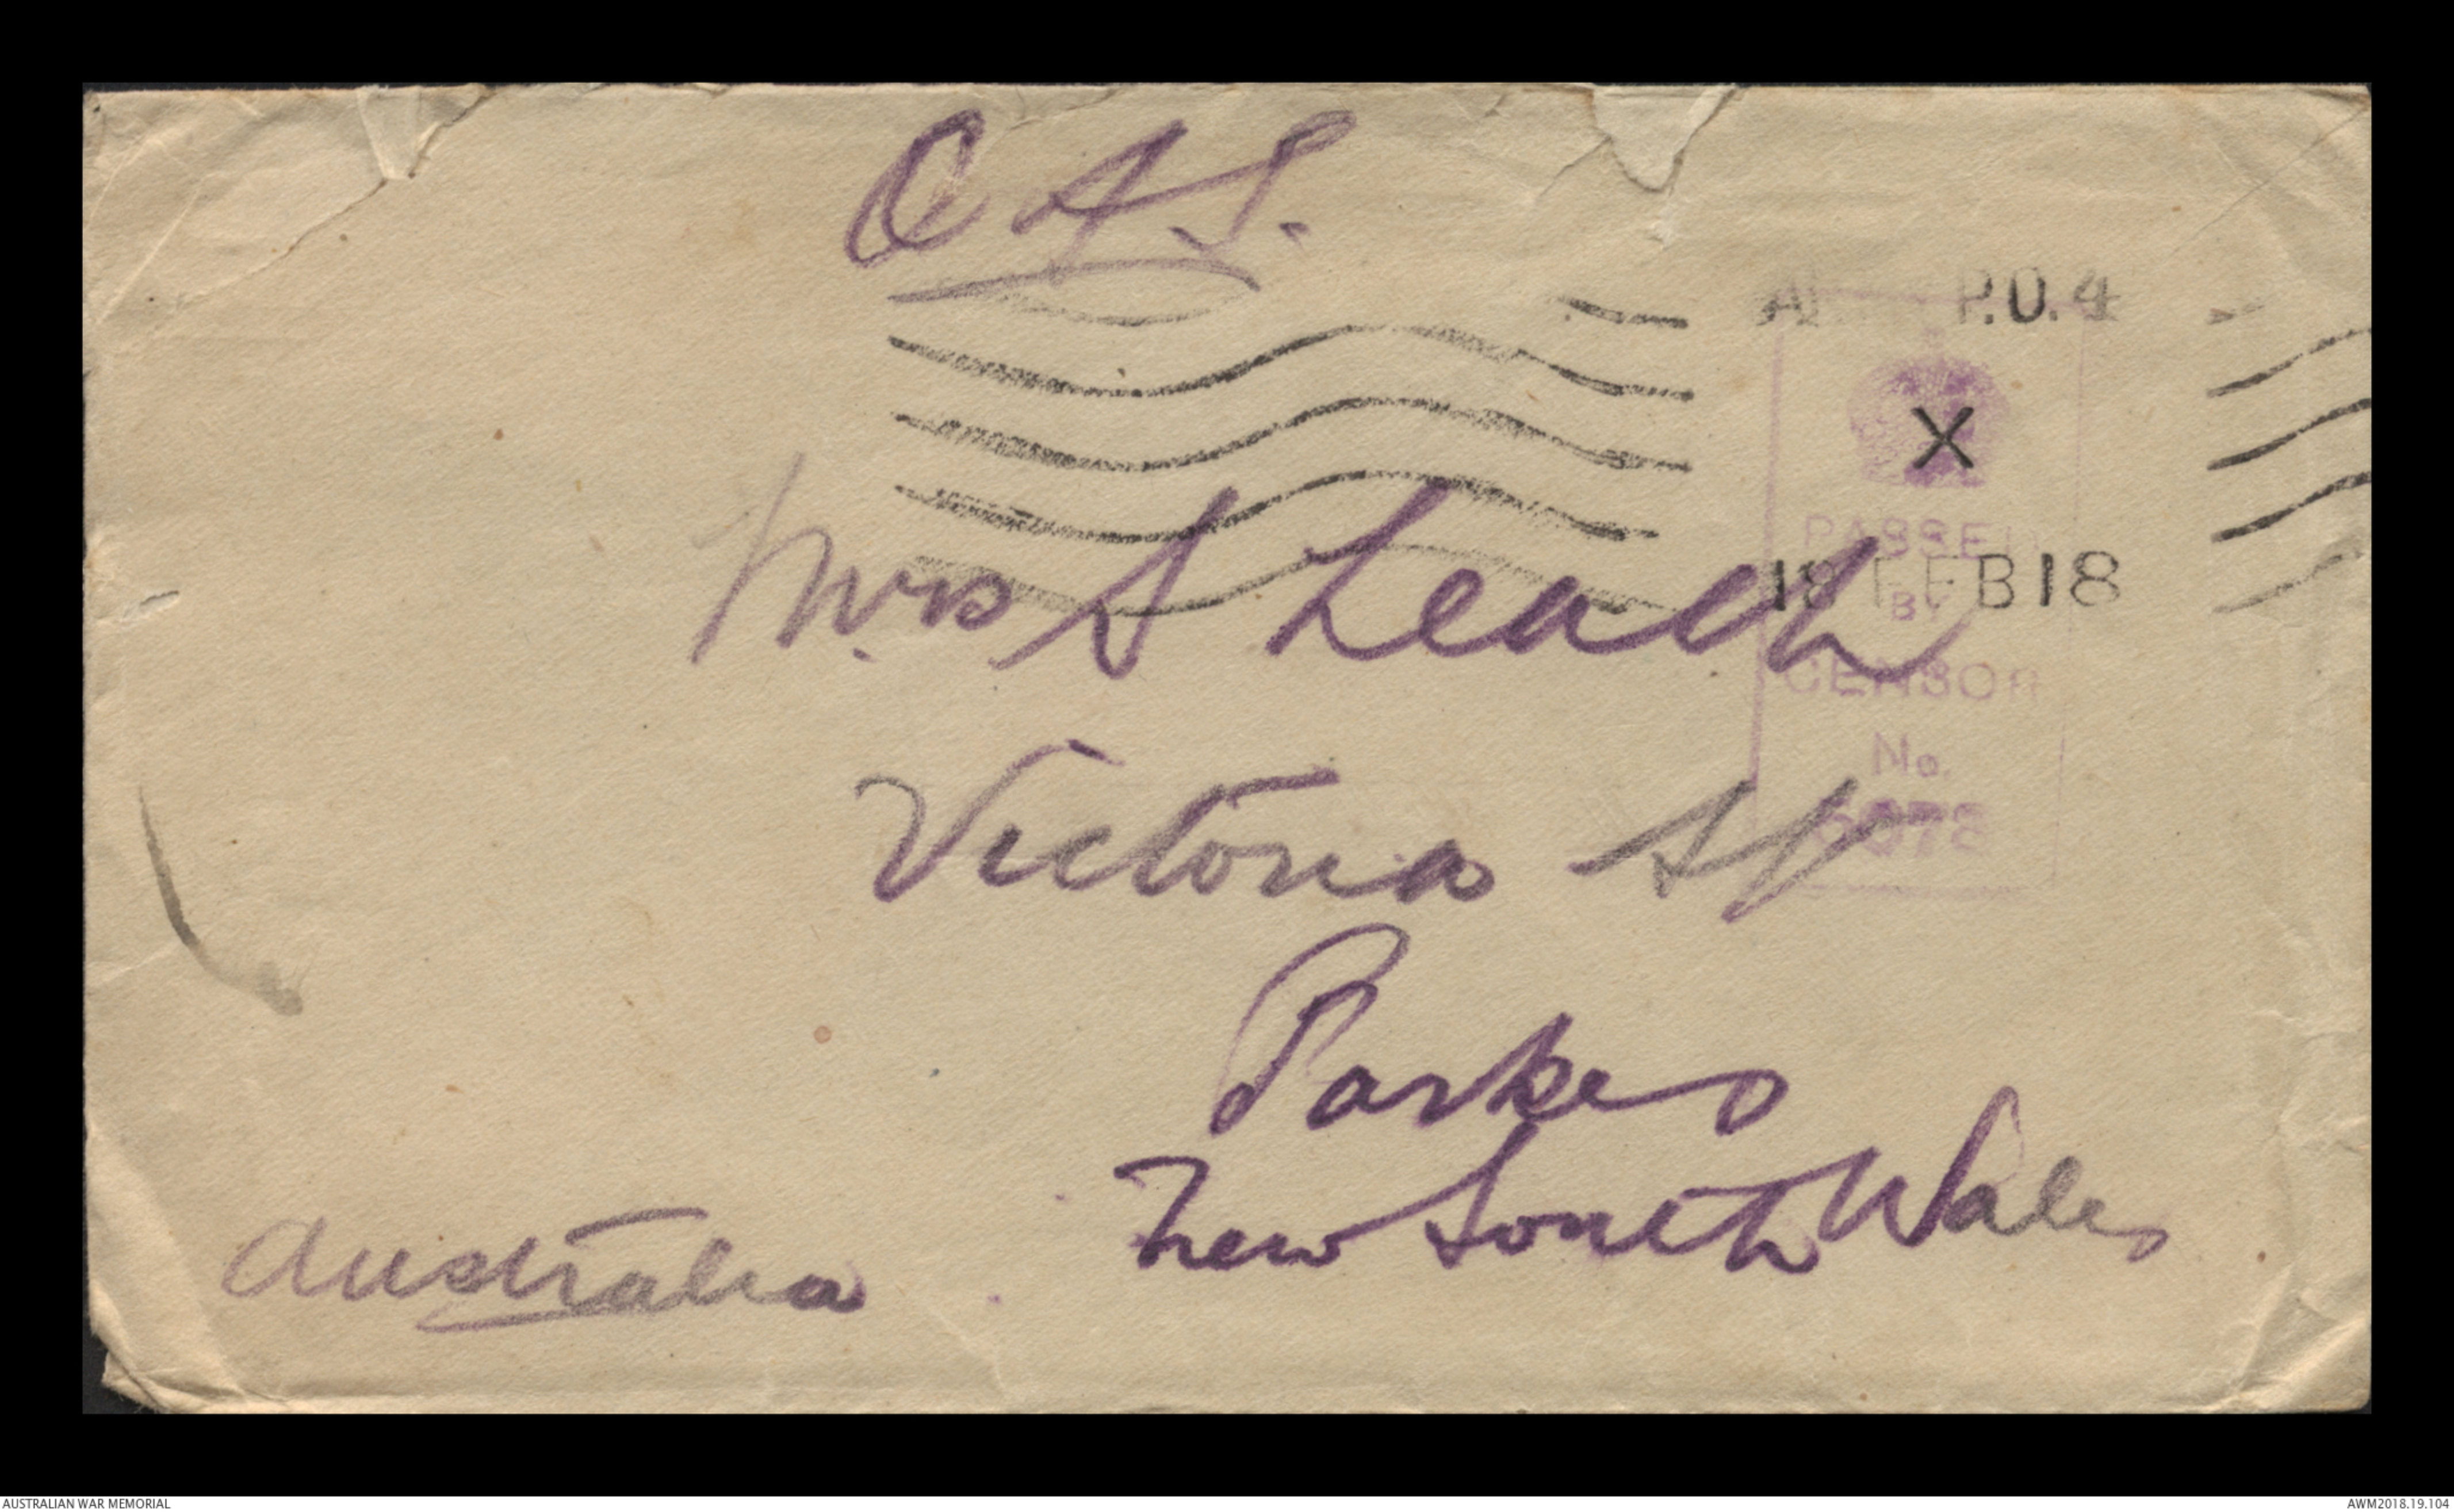 O A S.
P.O. 4
X
18 FEB 18
PASSED
BY
CENSOR
No.
Mrs S Leach
Victoria St
Parkes
New South Wales
Australia
AUSTRALIAN WAR MEMORIAL
AWM2018.19.104